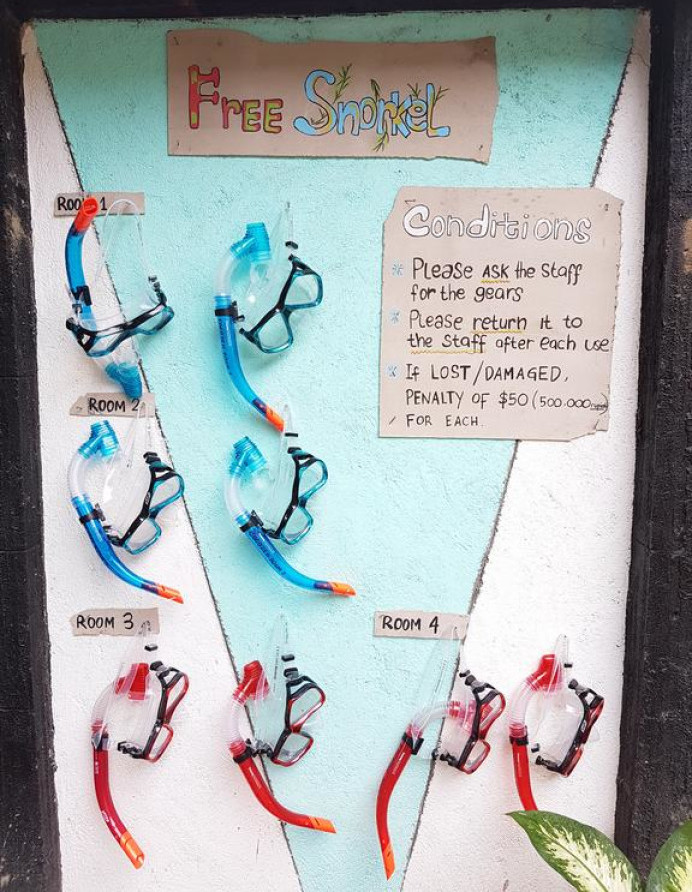 FREE SnorkeL
ROOM 1
Conditions
Please ASK the Staff
for the gears
Please return it to
the Staff after each use
If LOST/DAMAGED,
PENALTY OF $50 (500.000
FOR EACH.
ROOM 2
ROOM 3
ROOM 4